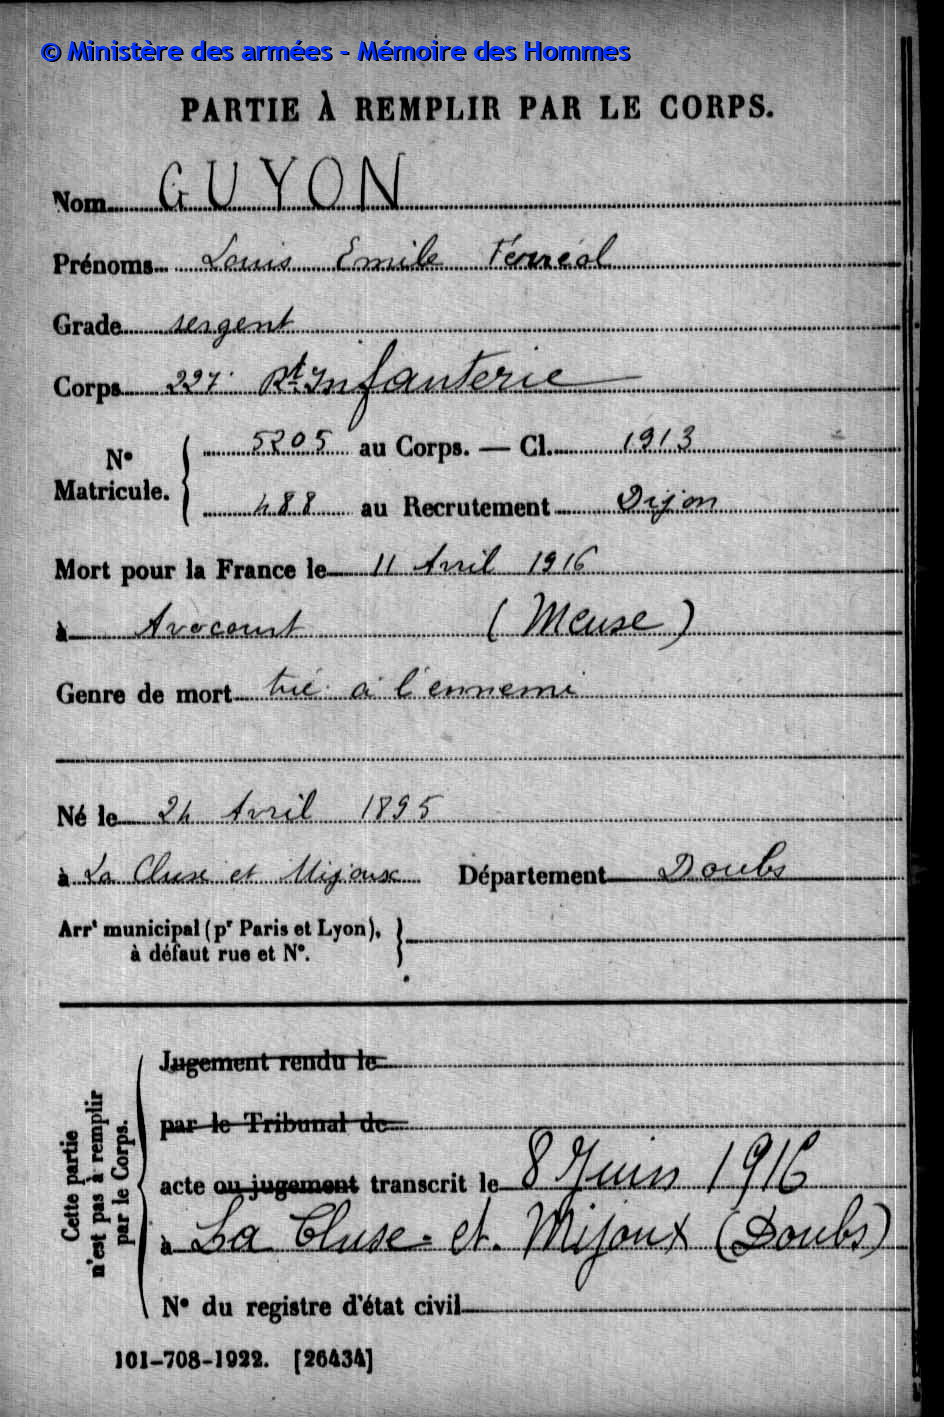 © Ministère des armées - Mémoire des Hommes
PARTIE À REMPLIR PAR LE CORPS.
Nom GUYON
Prénoms Louis Emile Ferréol
Grade sergent
Corps 227. Rt Infanterie
N° Matricule. 5205 au Corps. — Cl. 1913
488 au Recrutement Dijon
Mort pour la France le 11 Avril 1916
à Avocourt (Meuse)
Genre de mort tué à l'ennemi
Né le 24 Avril 1895
à La Cluse et Mijoux Département Doubs
Arrt municipal (pr Paris et Lyon),
à défaut rue et N°.
Cette partie n'est pas à remplir par le Corps.
Jugement rendu le
par le Tribunal de
acte ou jugement transcrit le 8 Juin 1916
à La Cluse-et-Mijoux (Doubs)
N° du registre d'état civil
101-708-1922. [26434]